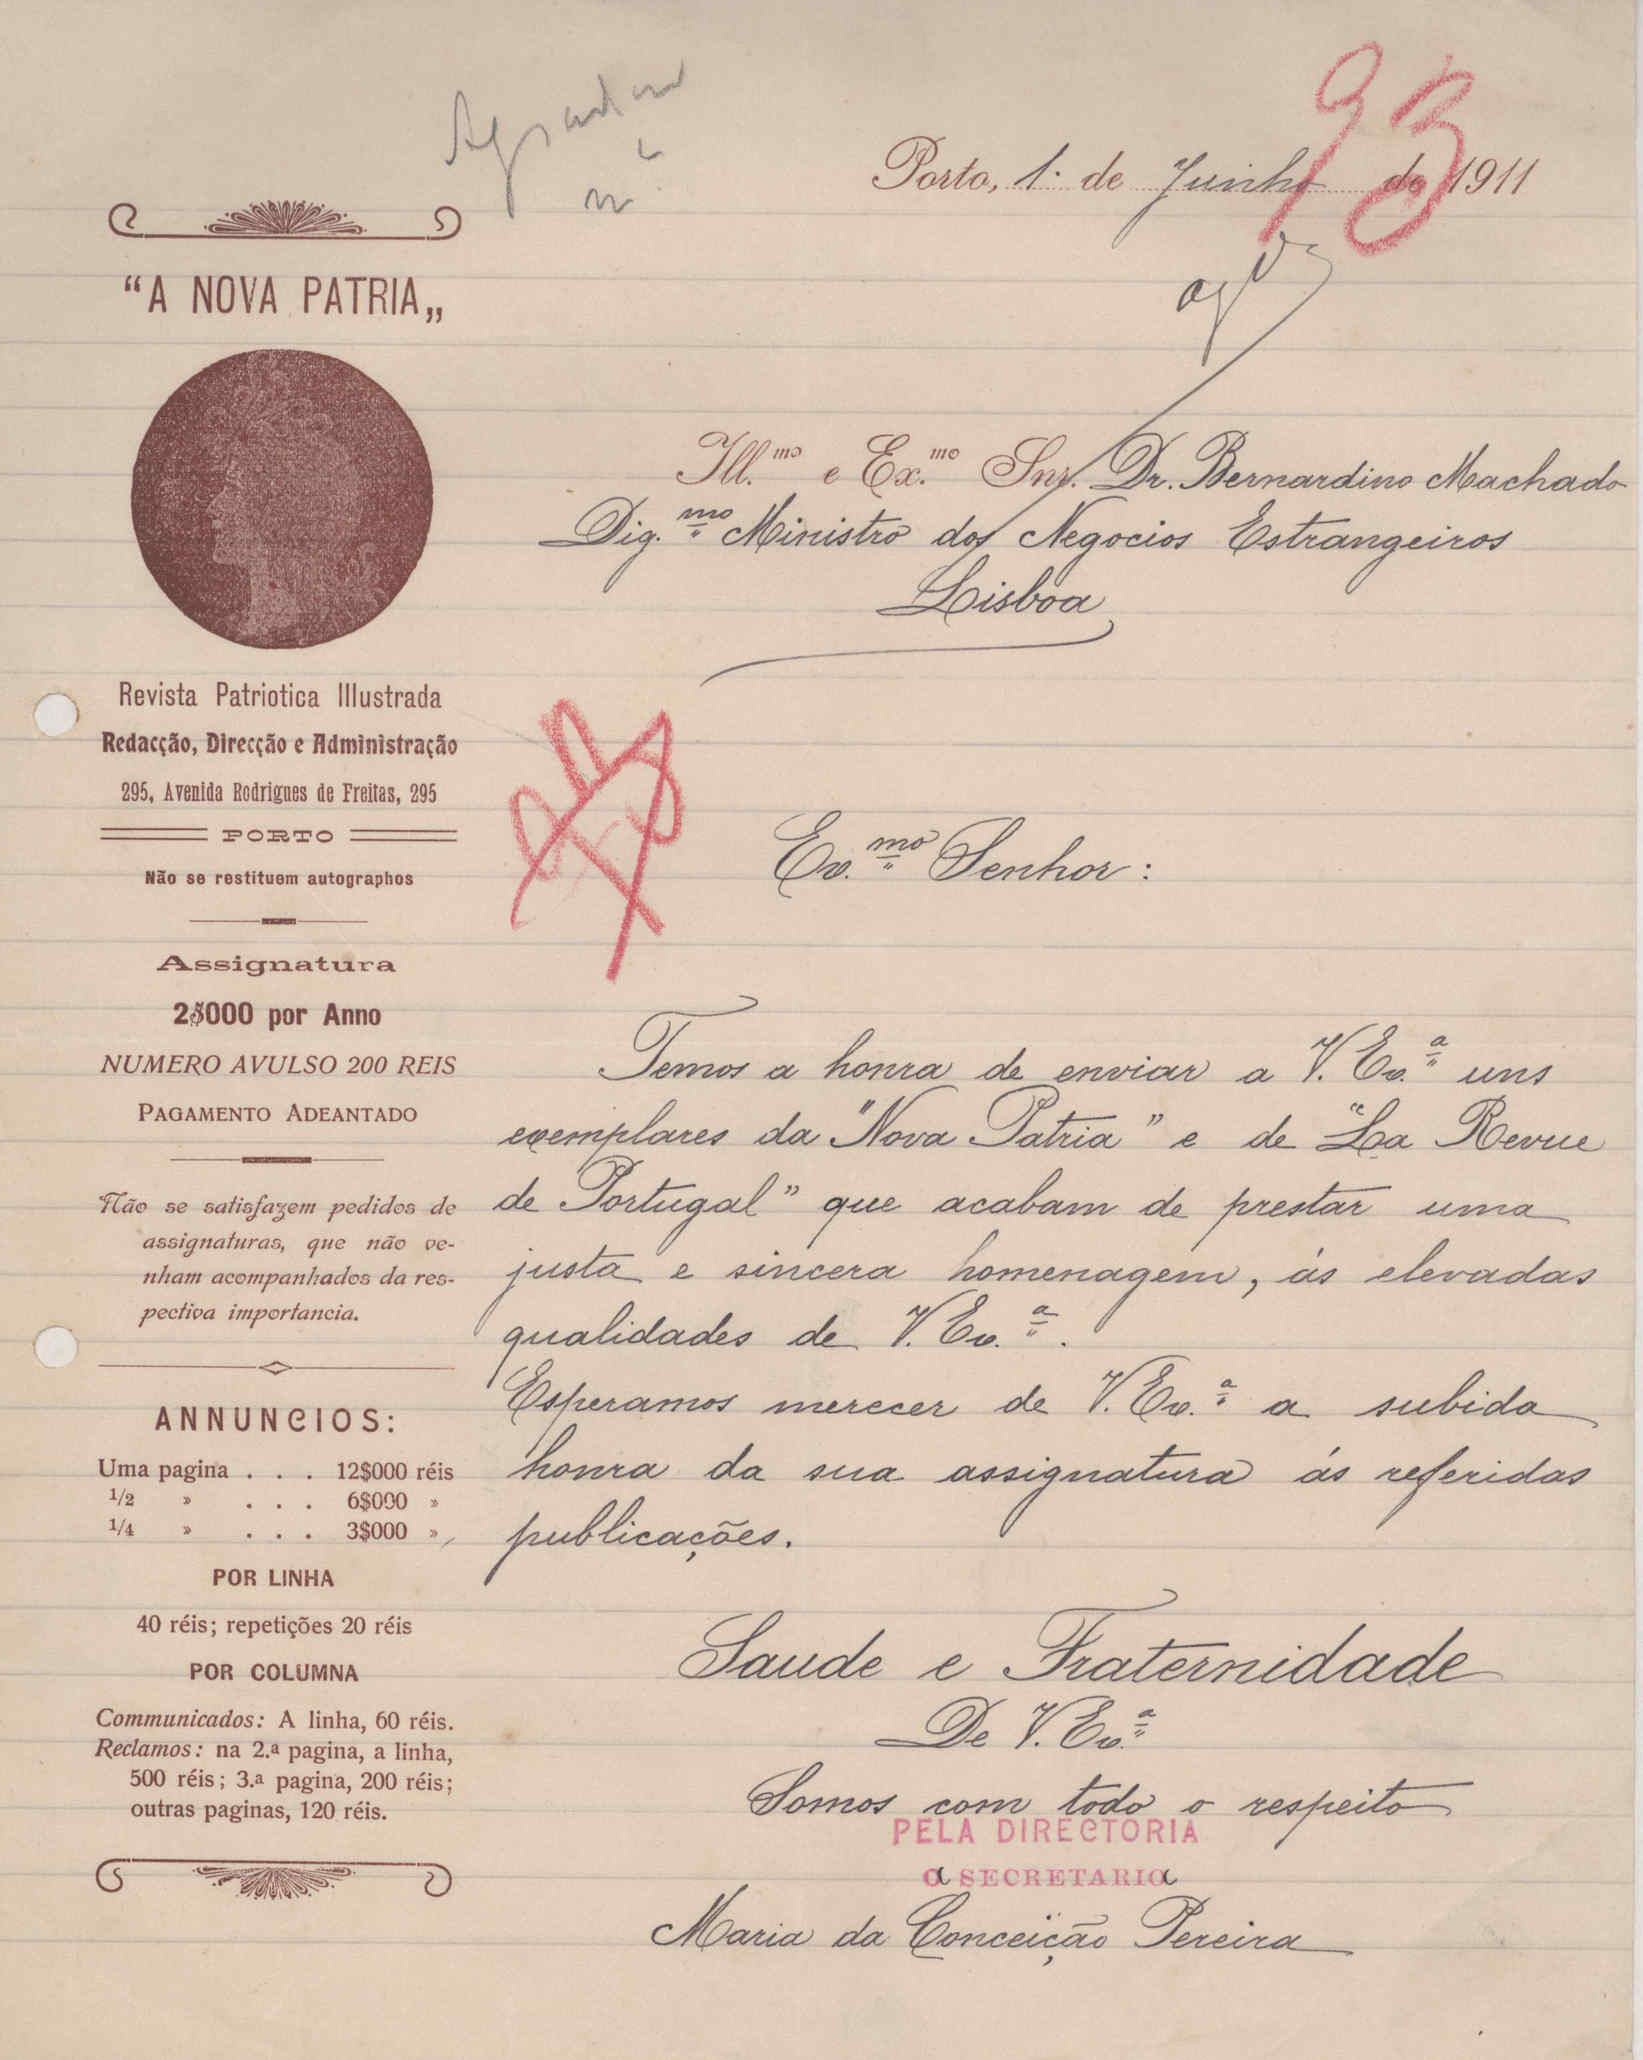 93
Porto, 1. de Junho de 1911
"A NOVA PATRIA„
Ill.mo e Ex.mo Snr. Dr. Bernardino Machado
Dig.mo Ministro dos Negocios Estrangeiros
Lisboa
Revista Patriotica Illustrada
Redacção, Direcção e Administração
295, Avenida Rodrigues de Freitas, 295
PORTO
Não se restituem autographos
Assignatura
2$000 por Anno
NUMERO AVULSO 200 REIS
PAGAMENTO ADEANTADO
Não se satisfazem pedidos de
assignaturas, que não ve-
nham acompanhados da res-
pectiva importancia.
ANNUNCIOS:
Uma pagina . . . 12$000 réis
1/2 » . . . 6$000 »
1/4 » . . . 3$000 »
POR LINHA
40 réis; repetições 20 réis
POR COLUMNA
Communicados: A linha, 60 réis.
Reclamos: na 2.a pagina, a linha,
500 réis; 3.a pagina, 200 réis;
outras paginas, 120 réis.
Ex.mo Senhor:
Temos a honra de enviar a V. Ex.a uns
exemplares da "Nova Patria" e de "La Revue
de Portugal" que acabam de prestar uma
justa e sincera homenagem, ás elevadas
qualidades de V. Ex.a.
Esperamos merecer de V. Ex.a a subida
honra da sua assignatura ás referidas
publicações.
Saude e Fraternidade
De V. Ex.a
Somos com todo o respeito
PELA DIRECTORIA
a SECRETARIa
Maria da Conceição Pereira